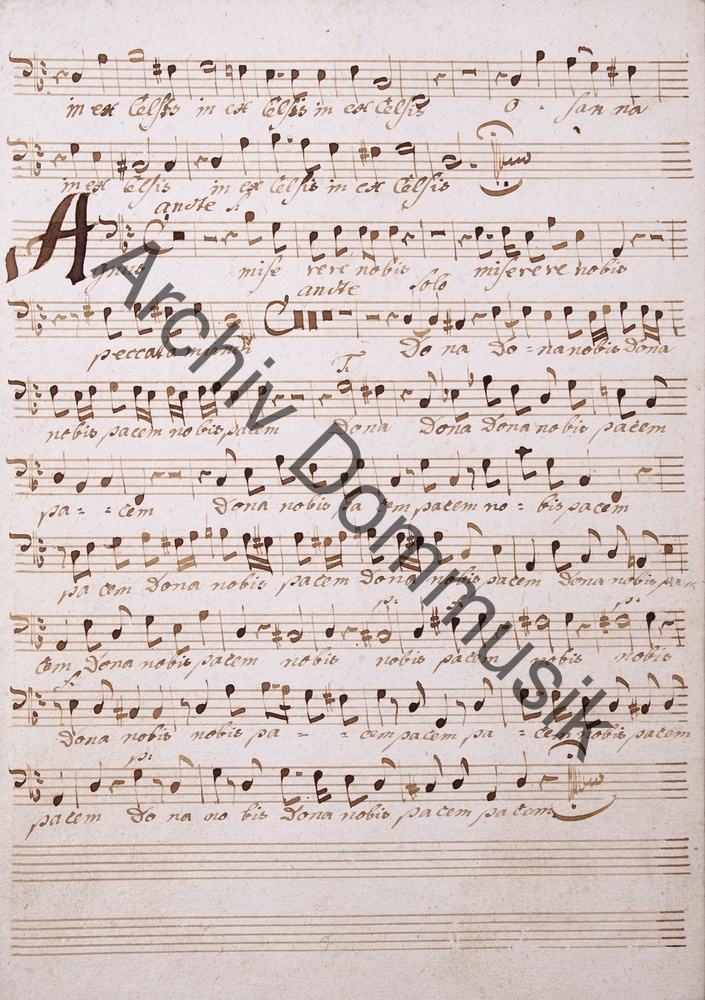 in ex Celsis in ex Celsis in ex Celsis O - san na
in ex Celsis in ex Celsis in ex Celsis
andte f:
Agnus mise rere nobis miserere nobis
andte solo
peccata mundi Do na Do - na nobis Dona
T.
nobis pacem nobis pacem Dona Dona Dona nobis pacem
pa - - cem Dona nobis pa cem pacem no - bis pacem
pa cem Dona nobis pacem Dona nobis pacem Dona nobis pa -
p: f: p:
cem Dona nobis pacem nobis nobis pacem nobis nobis
f:
Dona nobis nobis pa - - cem pacem pa - cem nobis pacem
p:
pacem Do na no bis Dona nobis pacem pacem
Archiv Dommusik